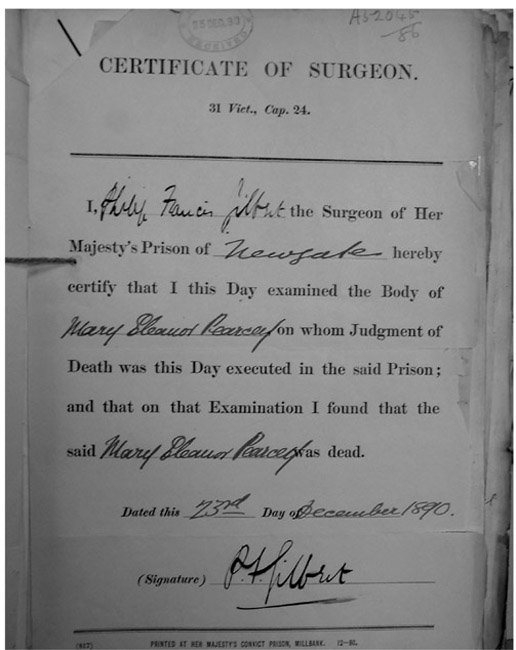 23 DEC. 90
RECEIVED
A52045
/86
CERTIFICATE OF SURGEON.
31 Vict., Cap. 24.
I, Philip Francis Gilbert the Surgeon of Her
Majesty's Prison of Newgate hereby
certify that I this Day examined the Body of
Mary Eleanor Pearcey on whom Judgment of
Death was this Day executed in the said Prison;
and that on that Examination I found that the
said Mary Eleanor Pearcey was dead.
Dated this 23rd Day of December 1890.
(Signature) P. F. Gilbert
PRINTED AT HER MAJESTY'S CONVICT PRISON, MILLBANK. 12-80.